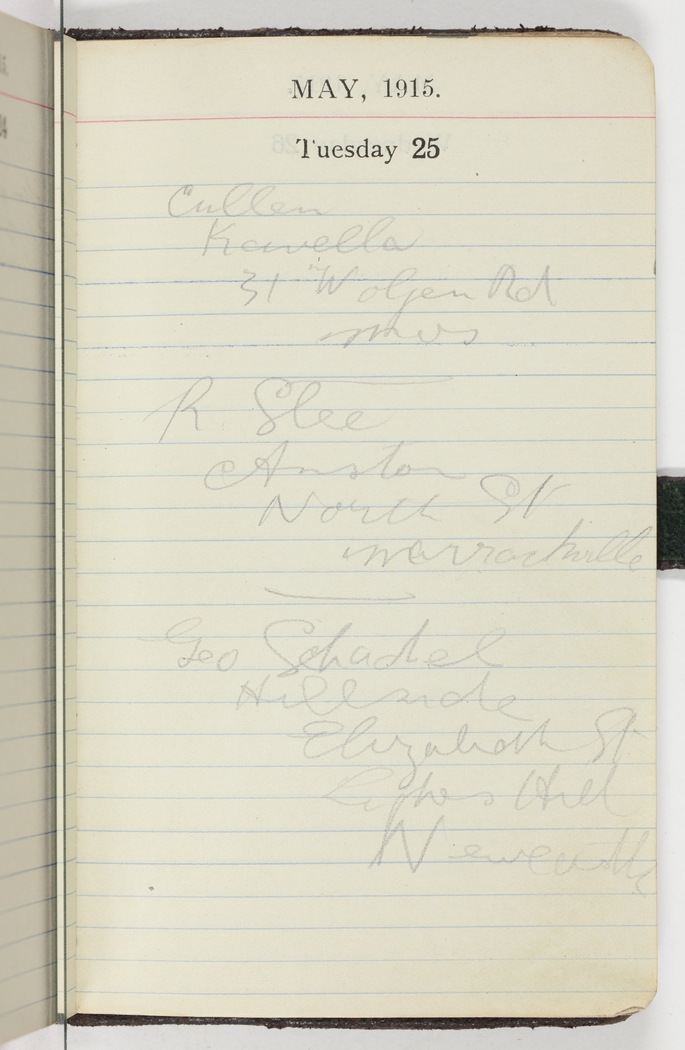 MAY, 1915.
Tuesday 25
Cullen
Kavella
31 Wolgen Rd
R Slee
Anston
North St
Marrackville
Geo Schadel
Hillside
Elizabeth St
Hill
Newcastle